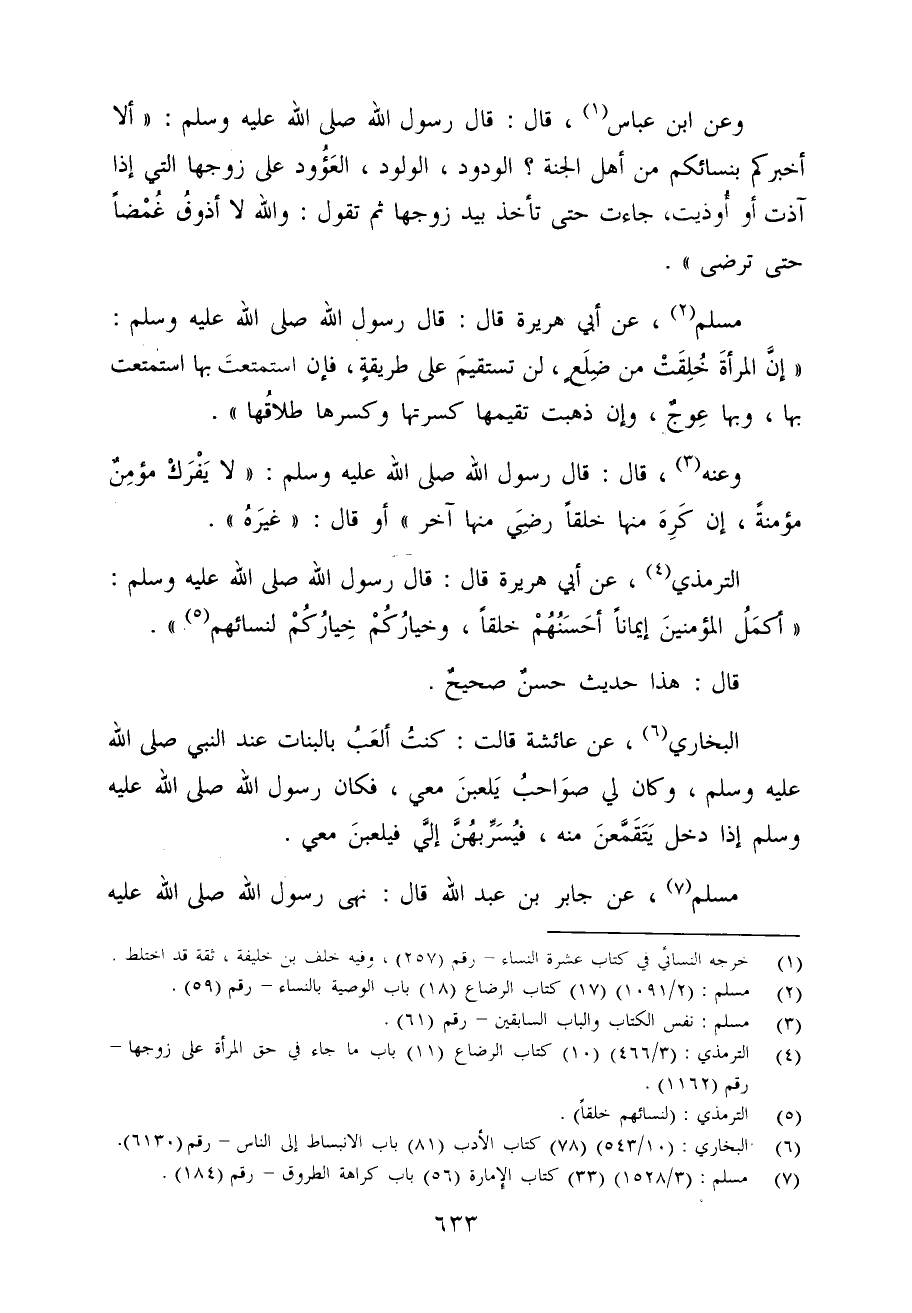 وعن ابن عباس(١) ، قال : قال رسول الله صلى الله عليه وسلم : « ألا
أخبركم بنسائكم من أهل الجنة ؟ الودود ، الولود ، العَؤُود على زوجها التي إذا
آذت أو أُوذيت، جاءت حتى تأخذ بيد زوجها ثم تقول : والله لا أذوقُ غُمْضاً
حتى ترضى » .
مسلم(٢) ، عن أبي هريرة قال : قال رسول الله صلى الله عليه وسلم :
« إنَّ المرأةَ خُلِقَتْ من ضِلَعٍ ، لن تستقيمَ على طريقةٍ ، فإن استمتعتَ بها استمتعت
بها ، وبها عِوجٌ ، وإن ذهبت تقيمها كسرتها وكسرها طلاقُها » .
وعنه(٣) ، قال : قال رسول الله صلى الله عليه وسلم : « لا يَفْرَكْ مؤمِنٌ
مؤمنةً ، إن كَرِهَ منها خلقاً رضيَ منها آخر » أو قال : « غيرَهُ » .
الترمذي(٤) ، عن أبي هريرة قال : قال رسول الله صلى الله عليه وسلم :
« أكمَلُ المؤمنينَ إيماناً أحسَنُهُمْ خلقاً ، وخيارُكُمْ خِيارُكُمْ لنسائهم(٥) » .
قال : هذا حديث حسنٌ صحيحٌ .
البخاري(٦) ، عن عائشة قالت : كنتُ ألعَبُ بالبنات عند النبي صلى الله
عليه وسلم ، وكان لي صوَاحبُ يَلعبنَ معي ، فكان رسول الله صلى الله عليه
وسلم إذا دخل يَتَقَمَّعنَ منه ، فيُسَرِّبهُنَّ إليَّ فيلعبنَ معي .
مسلم(٧) ، عن جابر بن عبد الله قال : نهى رسول الله صلى الله عليه
(١) خرجه النسائي في كتاب عشرة النساء – رقم (٢٥٧) ، وفيه خلف بن خليفة ، ثقة قد اختلط .
(٢) مسلم : (١٠٩١/٢) (١٧) كتاب الرضاع (١٨) باب الوصية بالنساء – رقم (٥٩) .
(٣) مسلم : نفس الكتاب والباب السابقين – رقم (٦١) .
(٤) الترمذي : (٤٦٦/٣) (١٠) كتاب الرضاع (١١) باب ما جاء في حق المرأة على زوجها –
رقم (١١٦٢) .
(٥) الترمذي : (لنسائهم خلقاً) .
(٦) البخاري : (٥٤٣/١٠) (٧٨) كتاب الأدب (٨١) باب الانبساط إلى الناس – رقم (٦١٣٠).
(٧) مسلم : (١٥٢٨/٣) (٣٣) كتاب الإمارة (٥٦) باب كراهة الطروق – رقم (١٨٤) .
٦٣٣